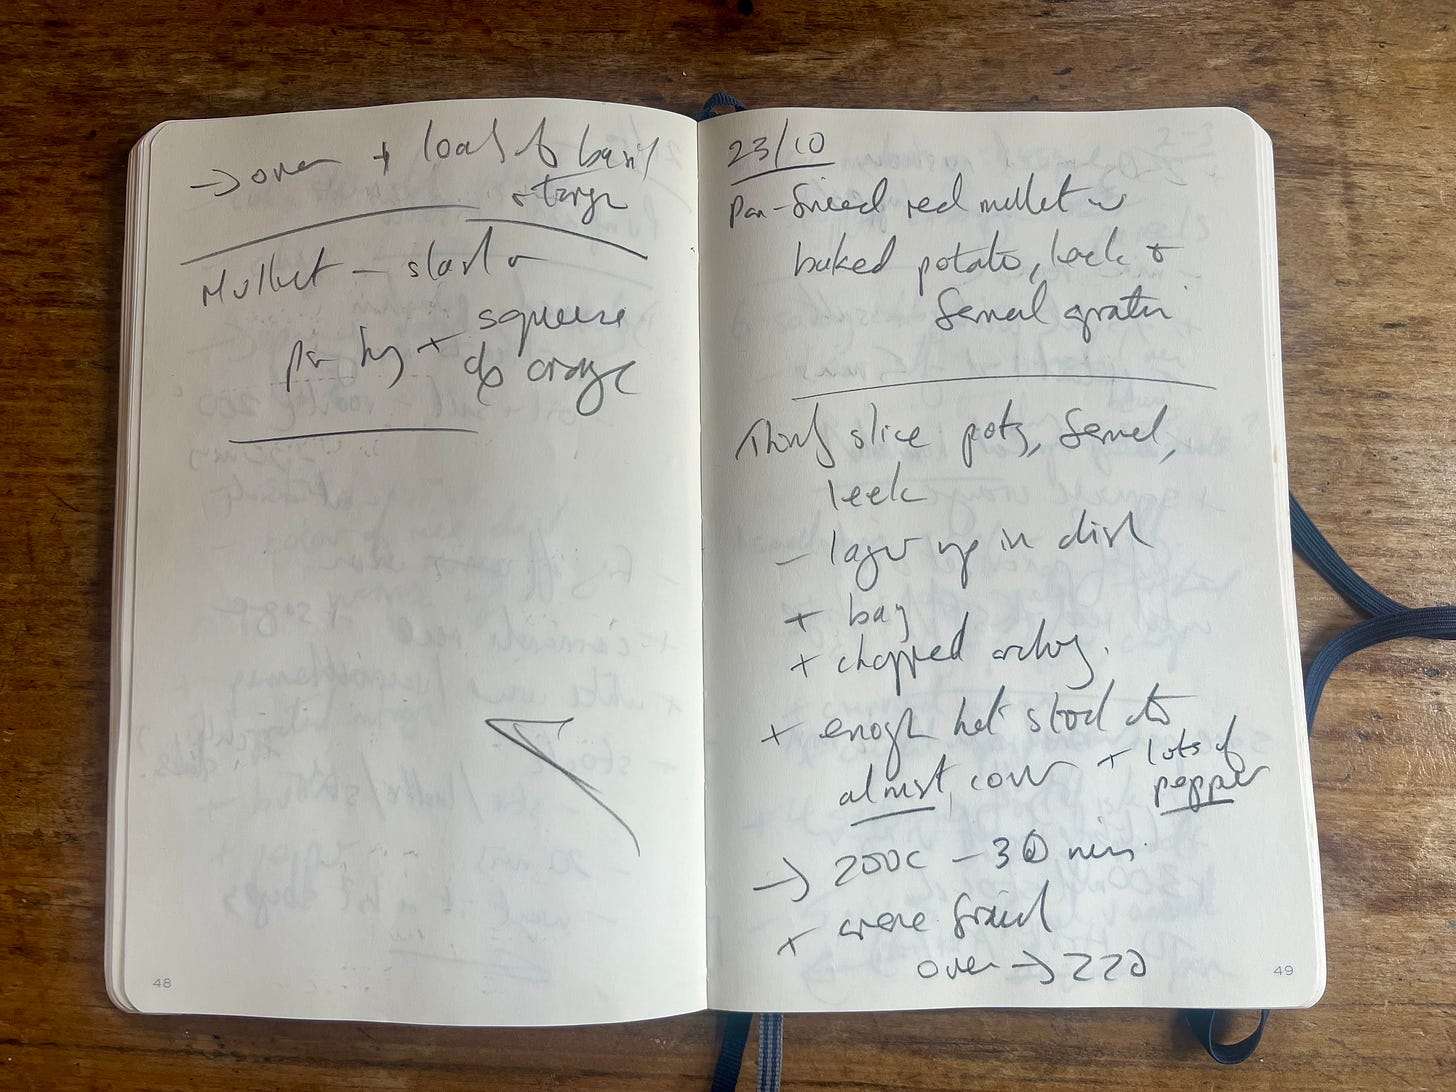 → oven + loads of basil
+ tarragon
Mullet – start in
pan + squeeze
of orange
48
23/10
Pan-fried red mullet w
baked potato, leek +
fennel gratin
Thinly slice pots, fennel,
leek
– layer up in dish
+ bay
+ chopped anchovy.
+ enough hot stock to
almost cover + lots of
pepper
→ 200C – 30 mins.
+ creme fraiche
oven → 220
49